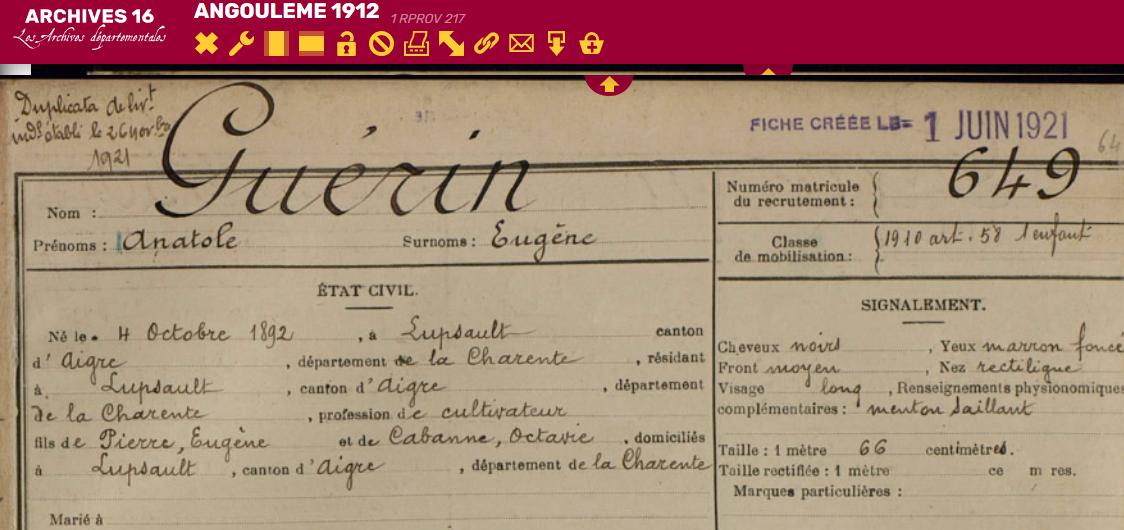 ARCHIVES 16
Les Archives départementales
ANGOULEME 1912 1 RPROV 217
Duplicata de livt
indel établi le 26 9bre
1921
FICHE CRÉÉE LE 1 JUIN 1921
64
Nom : Guérin
Prénoms : Anatole Surnoms : Eugène
Numéro matricule
du recrutement : 649
Classe
de mobilisation : 1910 art. 58 1 enfant
ÉTAT CIVIL.
Né le 4 Octobre 1892, à Lupsault canton
d'Aigre, département de la Charente, résidant
à Lupsault, canton d'Aigre, département
de la Charente, profession de cultivateur
fils de Pierre, Eugène et de Cabanne, Octavie, domiciliés
à Lupsault, canton d'Aigre, département de la Charente
Marié à
SIGNALEMENT.
Cheveux noirs, Yeux marron foncé
Front moyen, Nez rectiligne
Visage long, Renseignements physionomiques
complémentaires : menton saillant
Taille : 1 mètre 66 centimètres.
Taille rectifiée : 1 mètre ce m res.
Marques particulières :